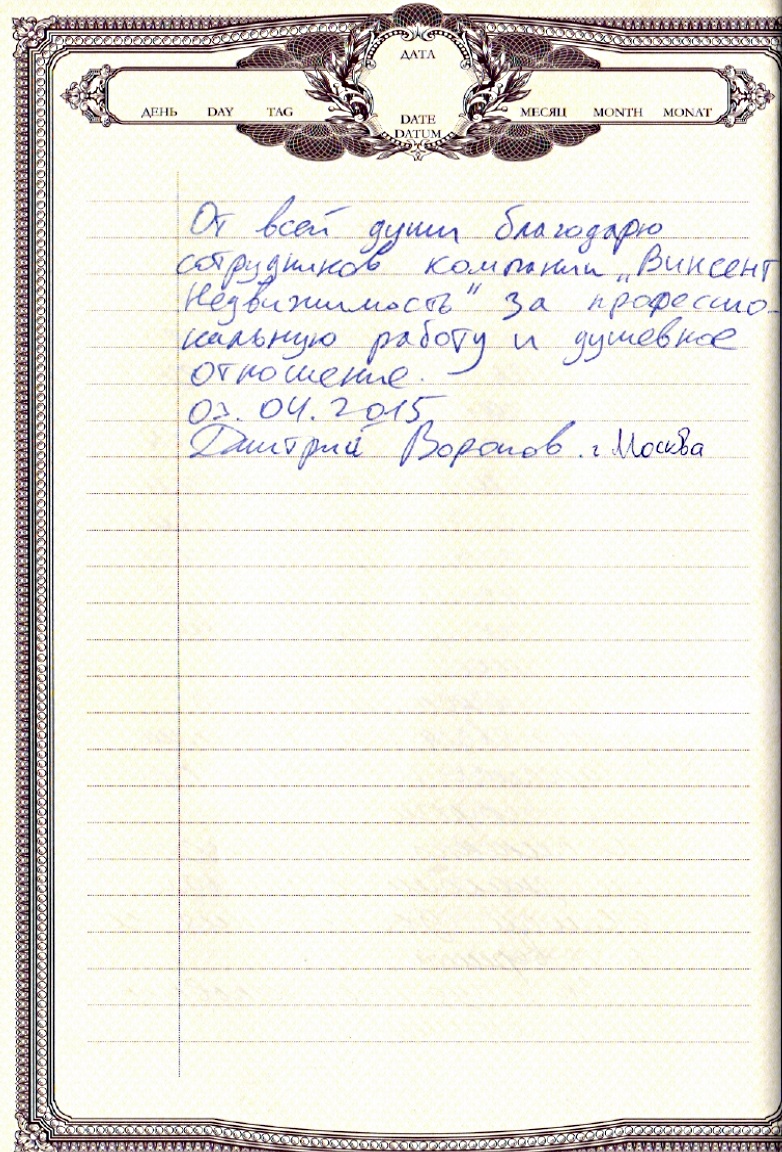 ДАТА
ДЕНЬ DAY TAG
DATE
DATUM
МЕСЯЦ MONTH MONAT
От всей души благодарю
сотрудников компании „Винсент
Недвижимость" за профессио-
нальную работу и душевное
отношение.
04.2015
Дмитрий г Москва